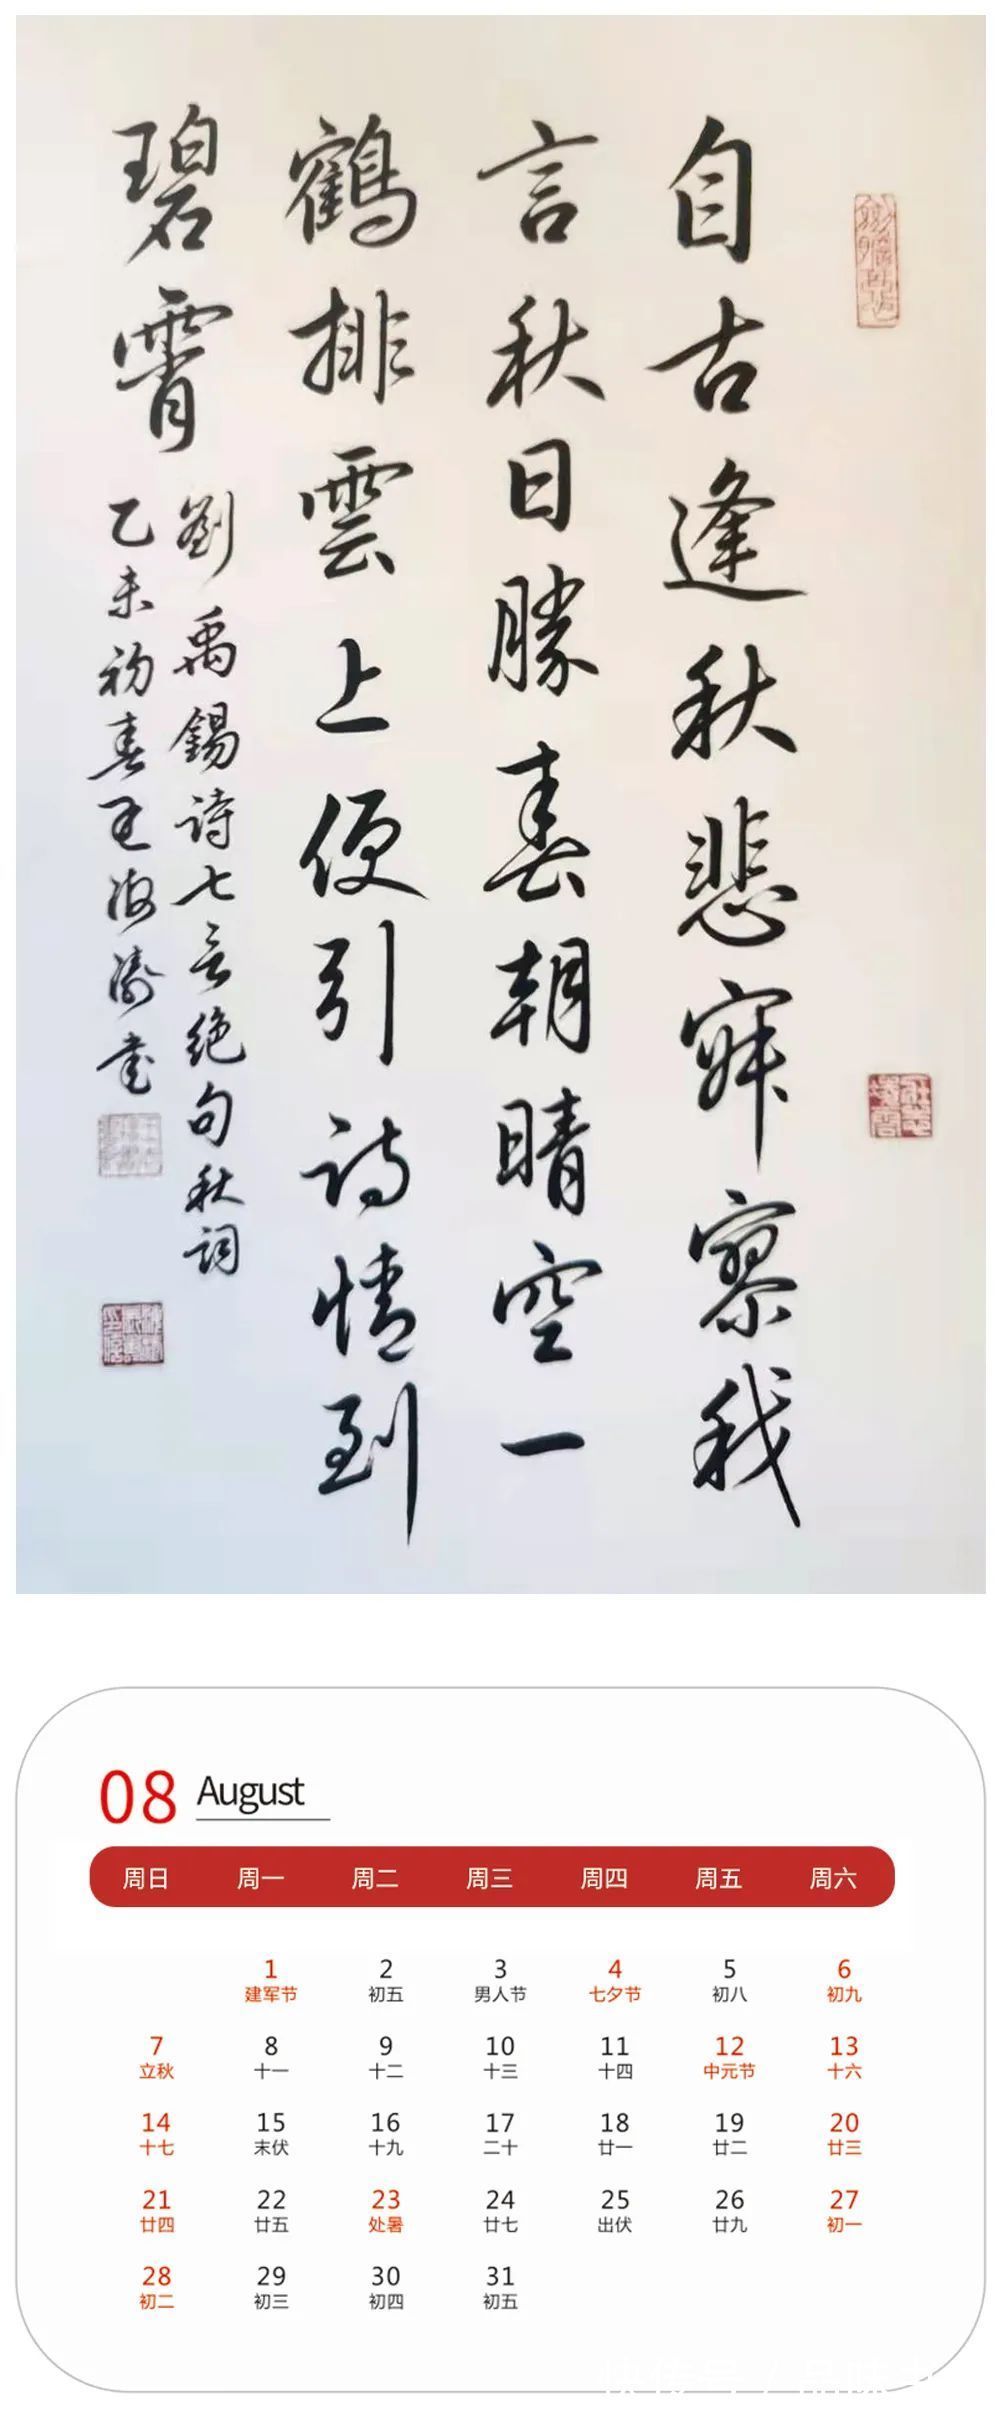 自古逢秋悲寂寥我
言秋日勝春朝晴空一
鶴排雲上便引詩情到
碧霄
劉禹錫詩七言绝句秋詞
乙未初春王海濤書
08 August
周日 周一 周二 周三 周四 周五 周六
1 2 3 4 5 6
建军节 初五 男人节 七夕节 初八 初九
7 8 9 10 11 12 13
立秋 十一 十二 十三 十四 中元节 十六
14 15 16 17 18 19 20
十七 末伏 十九 二十 廿一 廿二 廿三
21 22 23 24 25 26 27
廿四 廿五 处暑 廿七 出伏 廿九 初一
28 29 30 31
初二 初三 初四 初五